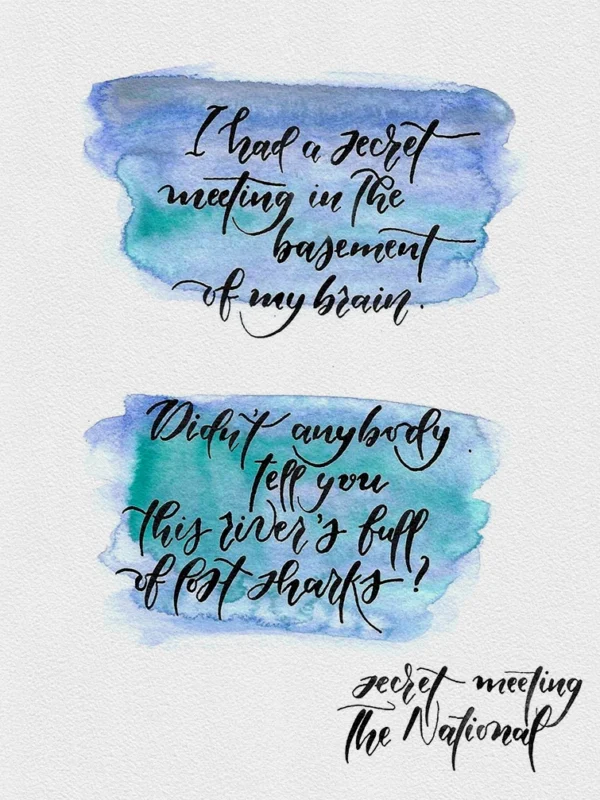 I had a secret
meeting in the
basement
of my brain.
Didn't anybody
tell you
this river's full
of lost sharks?
secret meeting
The National